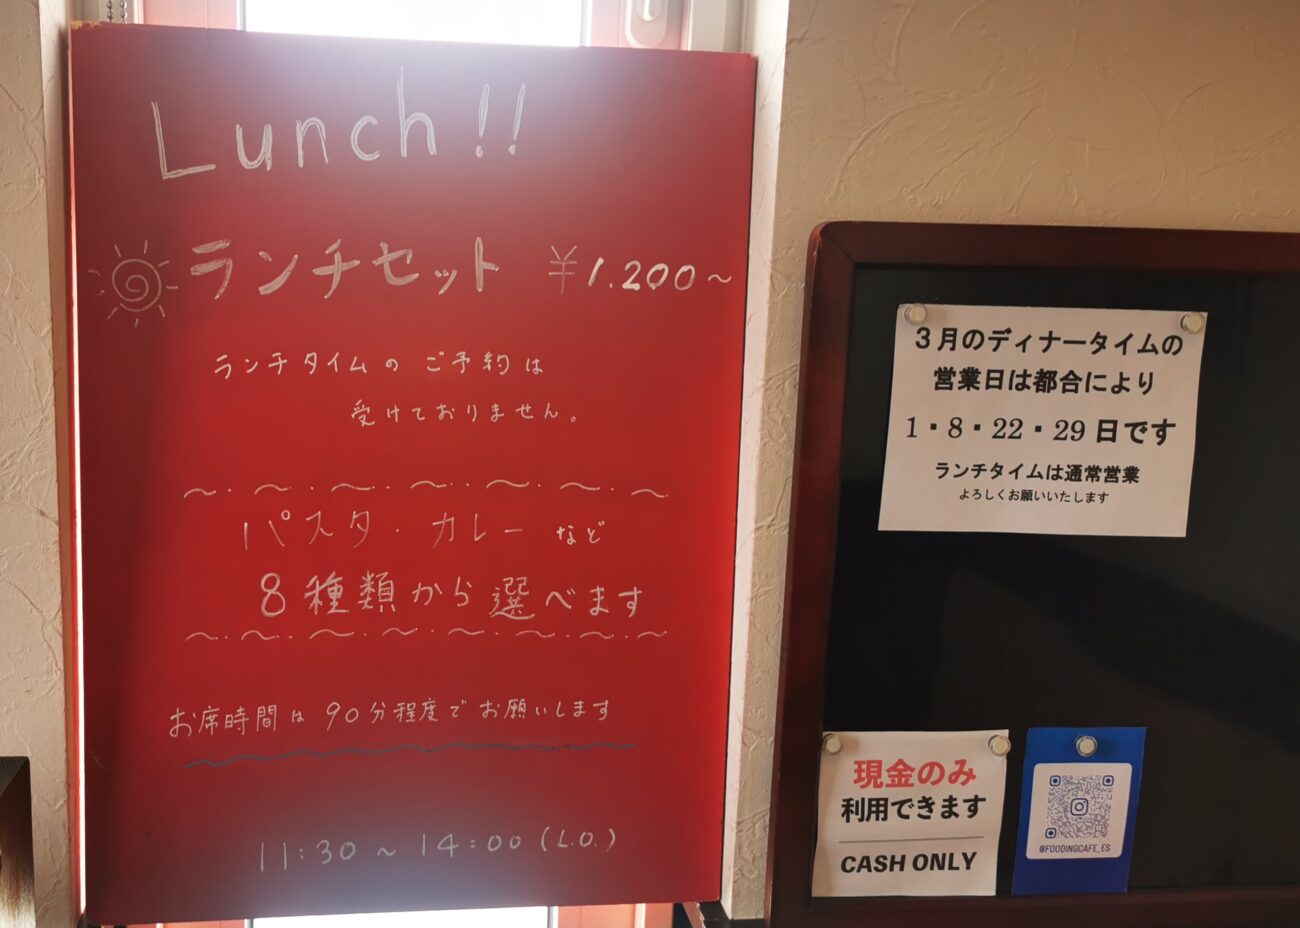 Lunch!!
ランチセット ¥1.200~
ランチタイムの ご予約は
受けておりません。
パスタ・カレー など
8種類から選べます
お席時間は 90分程度でお願いします
11:30 ~ 14:00 (L.O.)
3月のディナータイムの
営業日は都合により
1・8・22・29日です
ランチタイムは通常営業
よろしくお願いいたします
現金のみ
利用できます
CASH ONLY
@FOODINGCAFE_ES